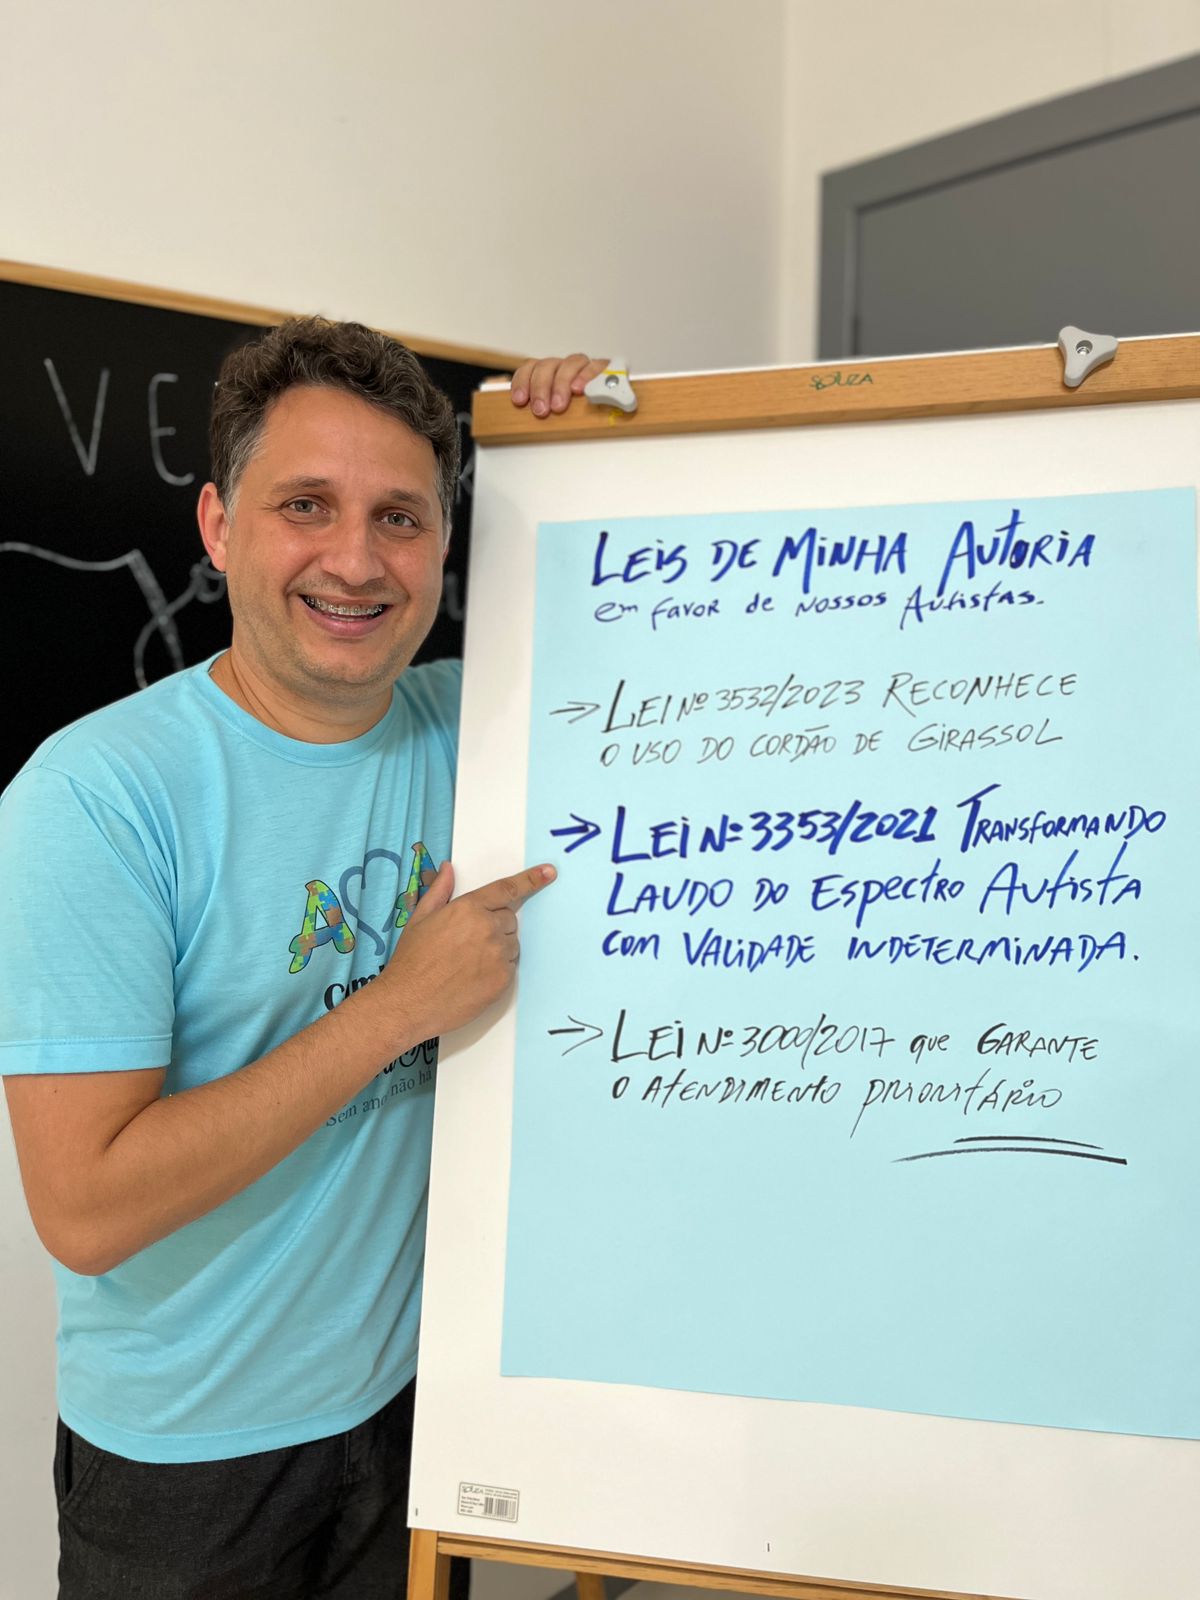 SOUZA
VE
LEIS DE MINHA AUTORIA
em favor de nossos Autistas.
→ LEI Nº 3532/2023 RECONHECE
O USO DO CORDÃO DE GIRASSOL
→ LEI Nº 3353/2021 TRANSFORMANDO
LAUDO DO ESPECTRO AUTISTA
COM VALIDADE INDETERMINADA.
→ LEI Nº 3000/2017 que GARANTE
O ATENDIMENTO PRIORITÁRIO
A A
Sem amor não há
SOUZA